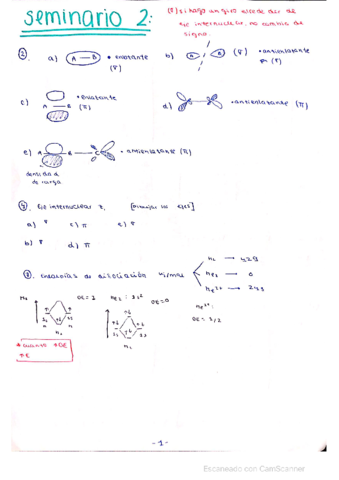 seminario 2:
(σ) si hago un giro alrededor del eje internuclear, no cambia de signo.
②. a) A — B • enlazante (σ)
b) A B (σ) • antienlazante
c) A — B • enlazante (π)
d) • antienlazante (π)
e) A B C • antienlazante (π)
densidad de carga
④. Eje internuclear z, [Dibujar los ejes]
a) σ c) π e) σ
b) σ d) π
⑨. energías de disociación mismas
H₂ → 429
He₂ → 0
He₂⁺ → 253
H₂ OE=1
He₂ : 1s² OE=0
He₂⁺ :
OE= 1/2
1s
1s
H
H
H₂
1s
1s
* cuanto ↑OE
↑E
-1-
Escaneado con CamScanner